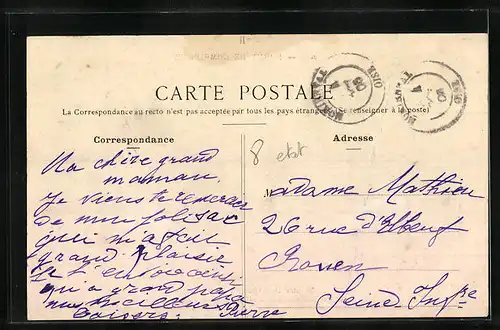 CARTE POSTALE
La Correspondance au recto n'est pas acceptée par tous les pays étrangers (Se renseigner à la poste)
Correspondance
Adresse
8 etat
Ma chère grand
maman,
Je viens te remercier
de mon joli sac
qui m'a fait
grand plaisir
Je t'envoie ainsi
qu'a grand papa
mes meilleurs
baisers. Pierre
Madame Mathieu
26 rue d'Elbeuf
Rouen
Seine Infre
OISE
OISE